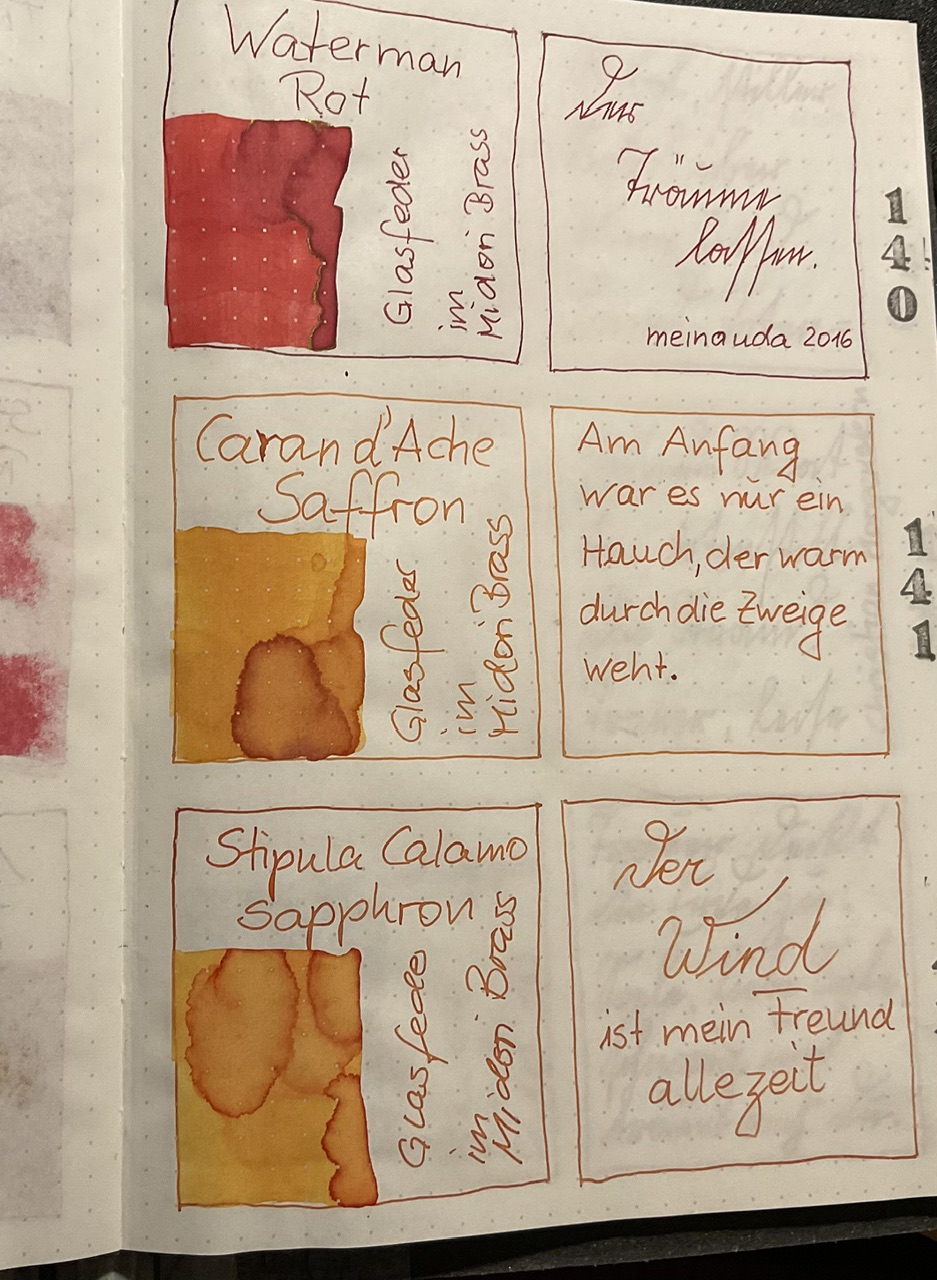 Waterman
Rot
Glasfeder
im
Midori Brass
Träume
lassen.
meinauda 2016
140
Caran d'Ache
Saffron
Glasfeder
im
Midori Brass
Am Anfang
war es nŭr ein
Hauch, der warm
durch die Zweige
weht.
141
Stipula Calamo
Sapphron
Glasfeder
im
Midori Brass
Der
Wind
ist mein Freund
allezeit